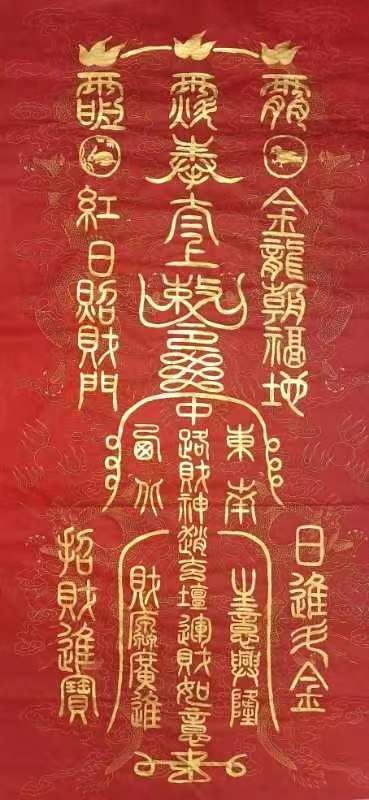 金龍朝福地
日進斗金
東南
生意興隆
奉太上敕令
中路財神趙玄壇運財如意
西北
財源廣進
紅日照財門
招財進寶